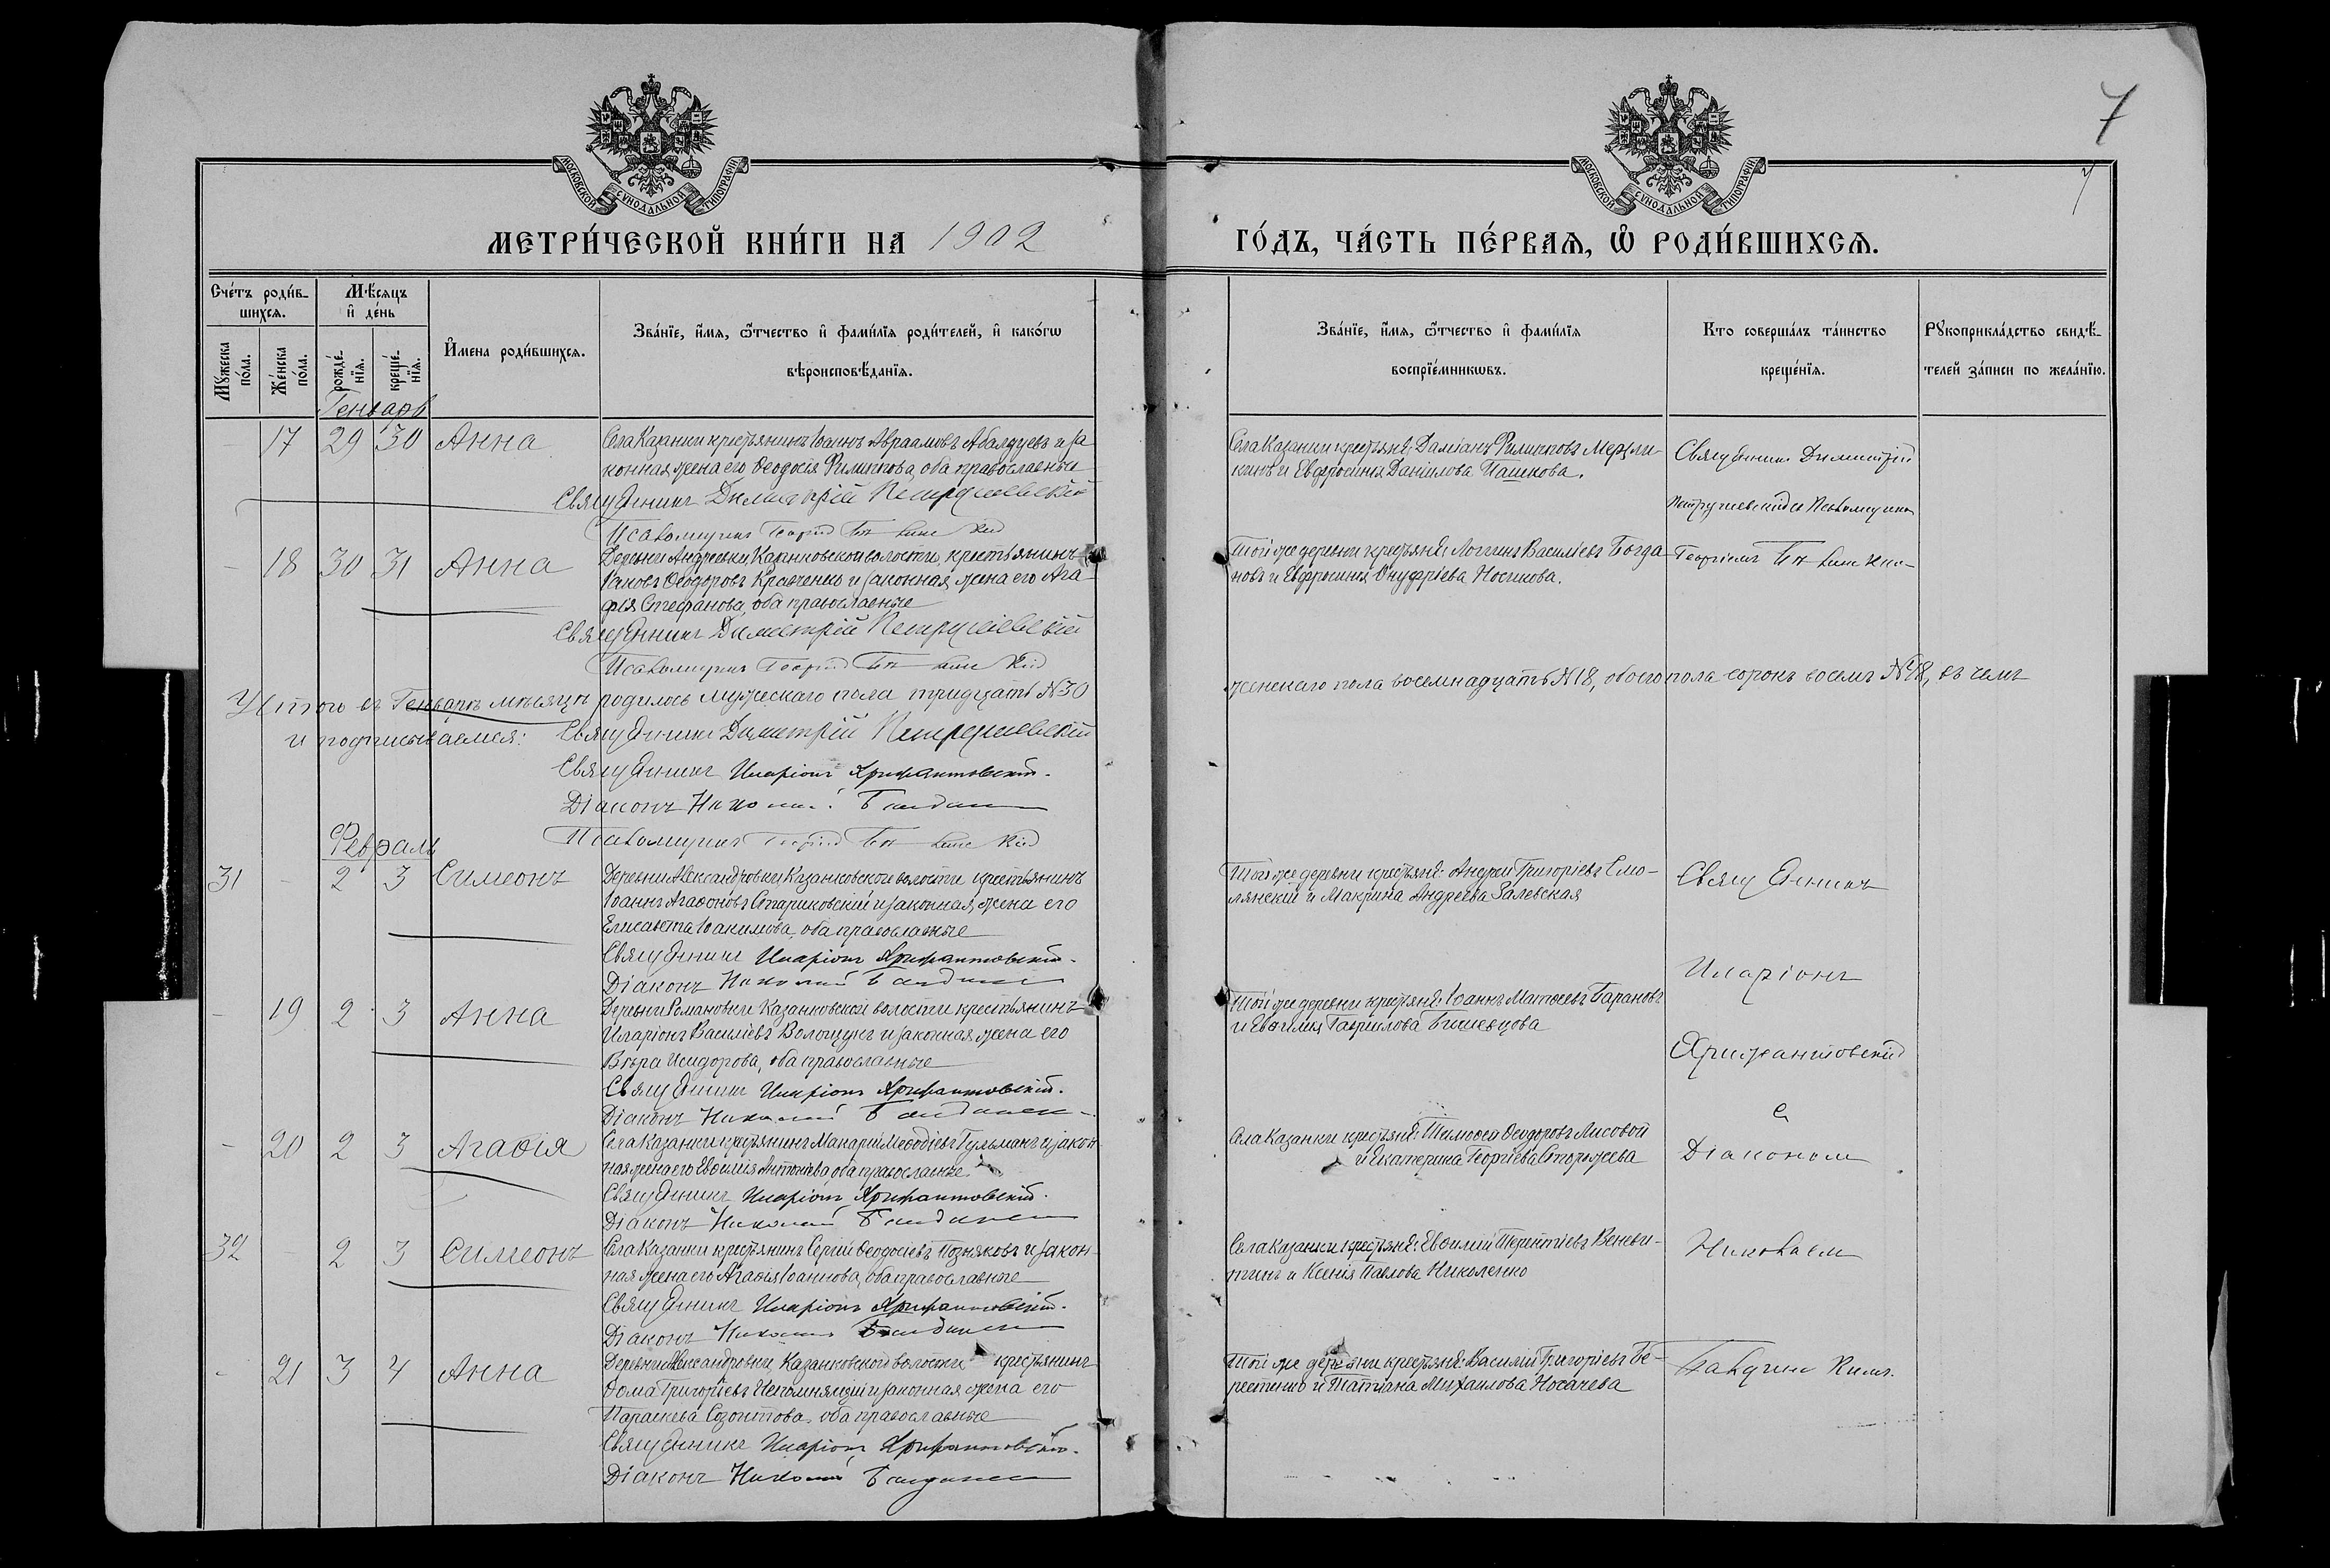 7
7
МОСКОВСКОЙ СѴНОДАЛЬНОЙ ТИПОГРАФІИ
МОСКОВСКОЙ СѴНОДАЛЬНОЙ ТИПОГРАФІИ
МЕТРИ́ЧЕСКОЙ КНИ́ГИ НА 1902
ГО́ДЪ, ЧА́СТЬ ПЕ́РВАѦ, Ѡ҆ РОДИ́ВШИХСѦ.
Сче́тъ роди́в-
шихсѧ.
Мꙋ́жеска по́ла.
Же́нска по́ла.
Мѣ́сѧцъ
и҆ де́нь
рожде́-
нїѧ.
креще́-
нїѧ.
И҆мена роди́вшихсѧ.
Зва́нїе, и҆́мѧ, ѻ҆́тчество и҆ фами́лїѧ роди́телей, и҆ како́гѡ
вѣроисповѣ́данїѧ.
Зва́нїе, и҆́мѧ, ѻ҆́тчество и҆ фами́лїѧ
воспрїе́мникѡвъ.
Кто соверша́лъ та́инство
креще́нїѧ.
Рꙋкоприкла́дство свидѣ́-
телей за́писи по жела́нїю.
Генварь
- 17 29 30 Анна
Села Казанки крестьянинъ Іоаннъ Авраамовъ и за
конная жена его Ѳеодосія Филиппова, оба православные
Священникъ Димитрій Петрушевскій
Псаломщикъ Георгій
Села Казанки крестьяне: Даміанъ Филипповъ Мерзли-
кинъ и Евфросинія Даніилова Пашкова.
Священникъ Димитрій
Петрушевскій съ Псаломщикомъ
- 18 30 31 Анна
Деревни Андреевки, Казанковской волости, крестьянинъ
Іаковъ Ѳеодоровъ Кравченко и законная жена его Ага-
фія Стефанова, оба православные
Священникъ Димитрій Петрушевскій
Псаломщикъ Георгій
Той же деревни крестьяне: Логгинъ Василіевъ Богда-
новъ и Евфросинія Онуфріева Носикова.
Георгіемъ
Итого въ Генварѣ мѣсяцѣ родилось мужескаго пола тридцать №30
женскаго пола восемнадцать №18, обоего пола сорокъ восемь №48, въ чемъ
и подписываемся: Священникъ Димитрій Петрушевскій
Священникъ Иларіонъ Хрисантовскій.
Діаконъ Николай
Псаломщикъ Георгій
Февраль
31 - 2 3 Симеонъ
Деревни Александровки Казанковской волости крестьянинъ
Іоаннъ Агаѳоновъ Стариковскій и законная жена его
Елисавета Іоакимова, оба православные
Священникъ Иларіонъ Хрисантовскій.
Діаконъ Николай
Той же деревни крестьяне: Андрей Григоріевъ Смо-
лянскій и Макрина Андреева Залевская
Священникъ
Иларіонъ
- 19 2 3 Анна
Деревни Романовки Казанковской волости крестьянинъ
Иларіонъ Василіевъ Волощукъ и законная жена его
Вѣра Исидорова, оба православные
Священникъ Иларіонъ Хрисантовскій.
Діаконъ Николай
Той же деревни крестьяне: Іоаннъ Матѳеевъ Барановъ
и Евѳимія Гавриилова
Хрисантовскій
съ
- 20 2 3 Агаѳія
Села Казанки крестьянинъ Макарій Меѳодіевъ Гульманъ и закон
ная жена его Евѳимія Антоніева, оба православные
Священникъ Иларіонъ Хрисантовскій.
Діаконъ Николай
Села Казанки крестьяне: Тимоѳей Ѳеодоровъ Лисовой
и Екатерина Георгіева Сторожева
Діакономъ
32 - 2 3 Симеонъ
Села Казанки крестьянинъ Сергій Ѳеодосіевъ Позняковъ и закон-
ная жена его Агаѳія Іоаннова, оба православные
Священникъ Иларіонъ Хрисантовскій.
Діаконъ Николай
Села Казанки крестьяне: Евѳимій Терентіевъ
и Ксенія Павлова Николенко
Николаемъ
- 21 3 4 Анна
Деревни Александровки Казанковской волости крестьянинъ
Ѳома Григоріевъ Непомнящій и законная жена его
Параскева Созонтова, оба православные
Священникъ Иларіонъ Хрисантовскій.
Діаконъ Николай
Той же деревни крестьяне: Василій Григоріевъ Бе-
рестенко и Татіана Михаилова Носачева